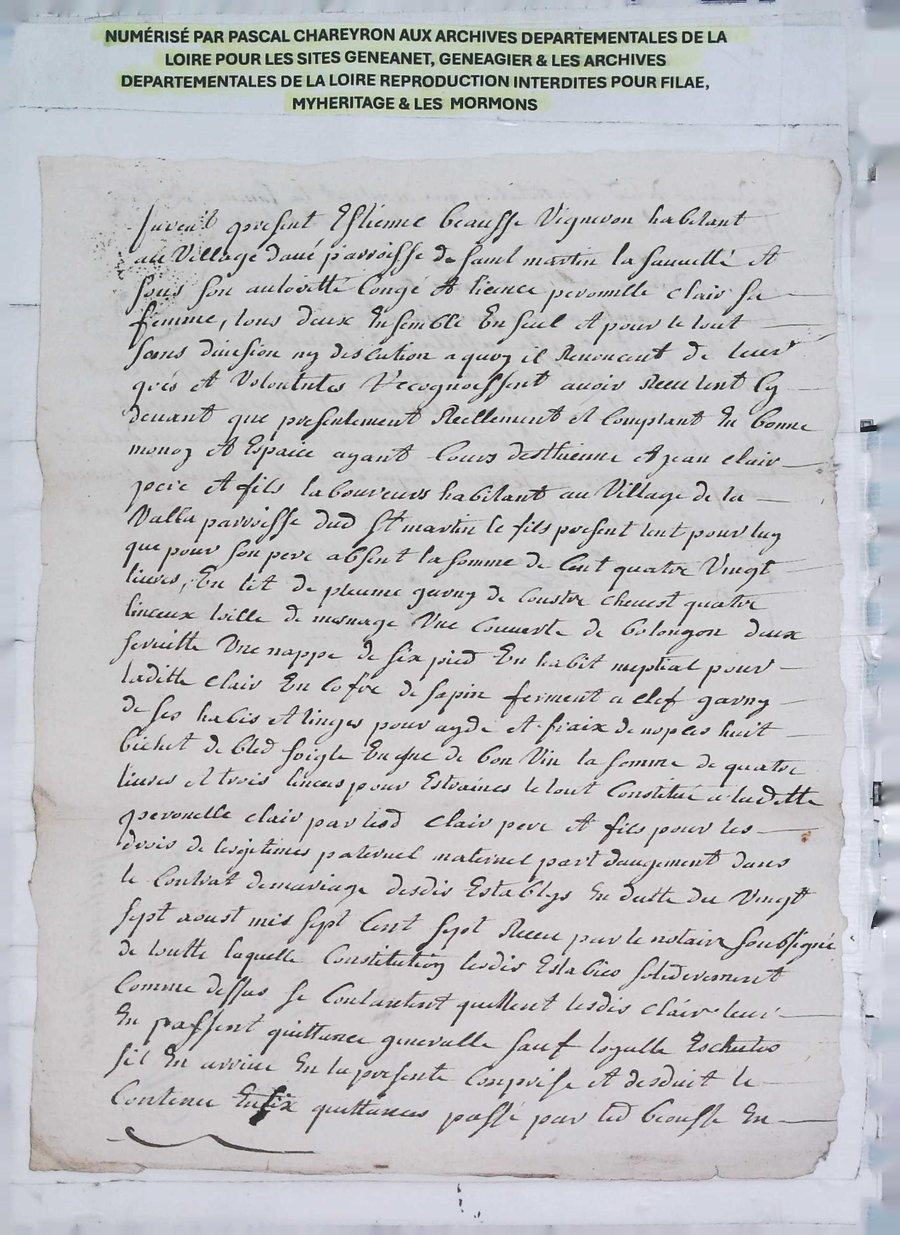 NUMÉRISÉ PAR PASCAL CHAREYRON AUX ARCHIVES DEPARTEMENTALES DE LA
LOIRE POUR LES SITES GENEANET, GENEAGIER & LES ARCHIVES
DEPARTEMENTALES DE LA LOIRE REPRODUCTION INTERDITES POUR FILAE,
MYHERITAGE & LES MORMONS
furent present Estienne beausse Vigneron habitant
au Village daué parroisse de saint martin la sauuetté et
sous son authoritté Congé et licence peronnelle clair sa
femme, tous deux Ensemble En seul et pour le tout
sans diuision ny discution a quoy il Renoncent de leur
grés et Volontutes recognoissent auoir Receu tent Cy
deuant que presentement Reellement et Comptant En bonne
monoy et Espaice ayant Cours desthienne et jean clair
pere et fils laboureurs habitant au Village de la
Valla parroisse dud St martin le fils present tent pour luy
que pour son pere absent la somme de Cent quatre Vingt
liures, En lit de plume garny de Coustre cheuest quatre
linceux toille de mesnage Vne Couuerte de deux
seruitte Vne nappe de six pied En habit neptial pour
laditte clair En Cofre de sapin ferment a clef garny
de ses habis et linges pour ayde et fraix de nopces huit
bichet de bled soigle En de bon Vin la somme de quatre
liures et trois pour Estraines le tout Constitué a laditte
peronelle clair par lesd clair pere et fils pour les
drois de legitimes paternel maternel part daugement dans
le Contrat de mariage desdis Establys En datte du Vingt
sept aoust mis sept Cent sept Receu par le notaire soubsigné
de toutte laquelle Constitution lesdis Establies soliderement
Comme dessus se Contantent quittent lesdis clair leur
En passent quittance generalle sauf loyalle Eschutes
sil En arriue En la presente Comprise et desduit le
Contenu En six quittances passé par led beausse En